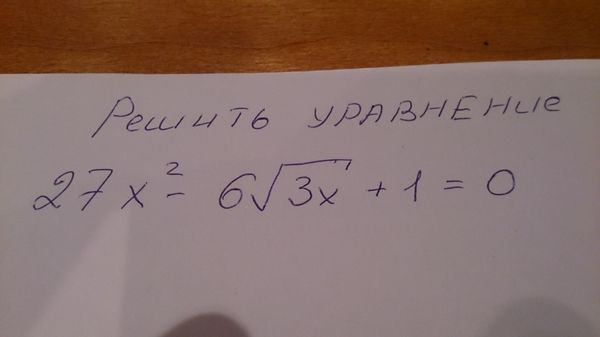 Решить уравнение
27x² - 6√3x + 1 = 0